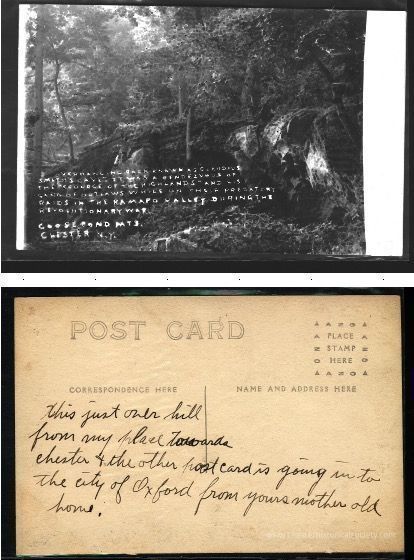 OVERHANGING ROCK KNOWN AS CLAUDIUS
SMITH'S CAVE. IT WAS A RENDEZVOUS OF
THE "SCOURGE OF THE HIGHLANDS" AND HIS
BAND OF OUTLAWS WHILE ON THEIR PREDATORY
RAIDS IN THE RAMAPO VALLEY DURING THE
REVOLUTIONARY WAR.
GOOSE POND MTS.
CHESTER N.Y.
POST CARD
AZO
PLACE
STAMP
HERE
AZO
CORRESPONDENCE HERE
NAME AND ADDRESS HERE
this just over hill
from my place towards
chester & the other post card is going in to
the city of Oxford from yours mother old
home.